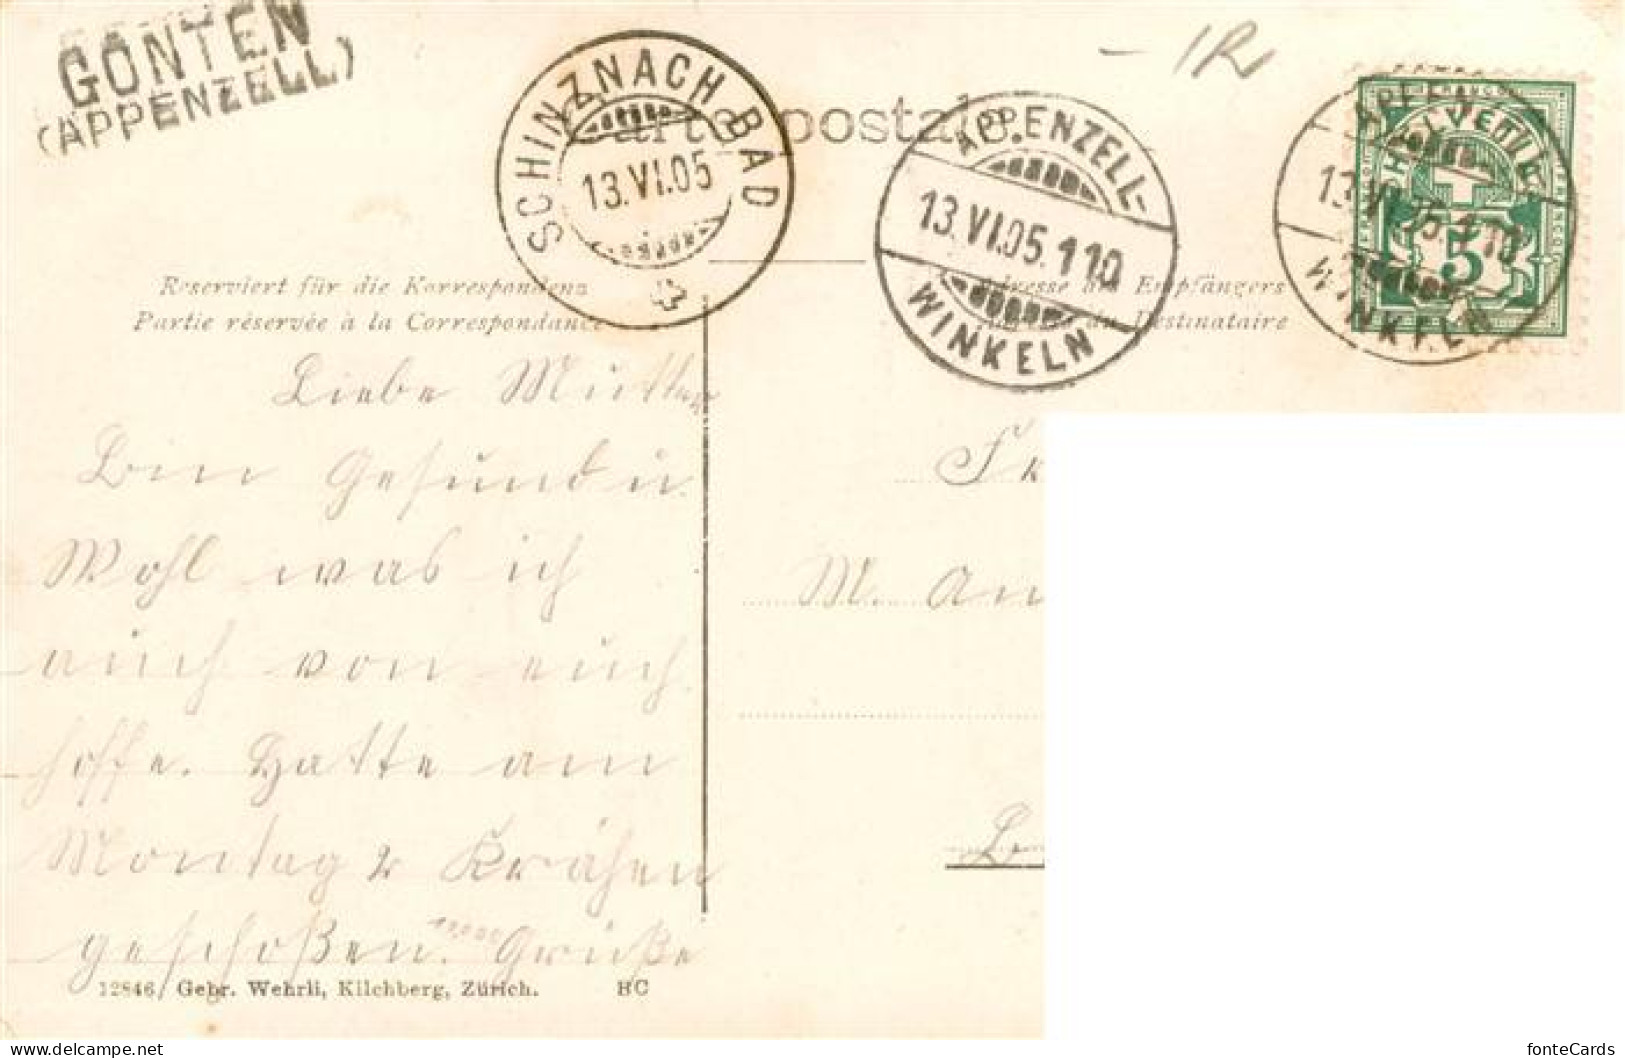 GONTEN
(APPENZELL)
SCHINZNACH BAD
13.VI.05
Carte postale
APPENZELL-
13.VI.05.110
WINKELN
- 1R
HELVETIA
5
13.VI.05.110
WINKELN
Reserviert für die Korrespondenz
Partie réservée à la Correspondance
Adresse des Empfängers
du Destinataire
Liebe Mutter
Bin Gesund u.
Wohl was ich
auch von euch
hoffe. Hatte am
Montag 2 Krähen
geschoßen. 10,000 Grüße
M. An
12846/ Gebr. Wehrli, Kilchberg, Zürich. HC
delcampe.net
fonteCards